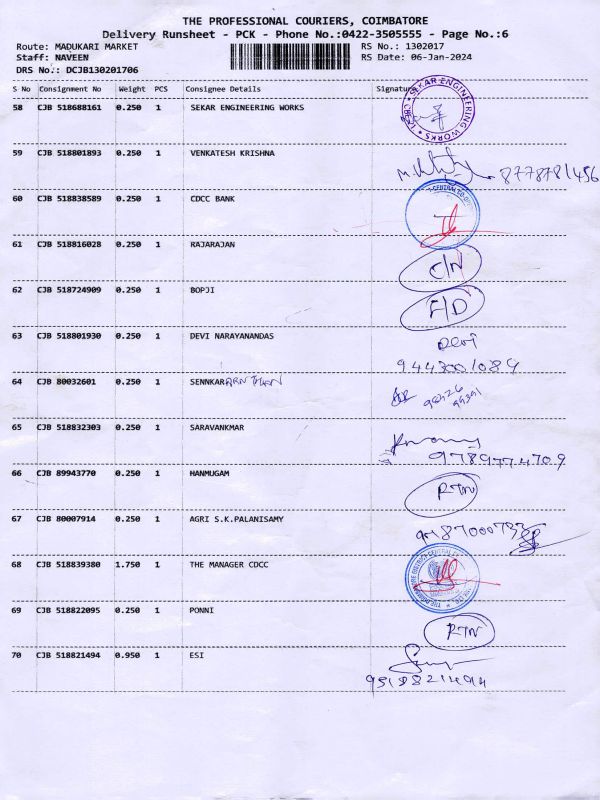 THE PROFESSIONAL COURIERS, COIMBATORE
Delivery Runsheet - PCK - Phone No.:0422-3505555 - Page No.:6
Route: MADUKARI MARKET RS No.: 1302017
Staff: NAVEEN RS Date: 06-Jan-2024
DRS No.: DCJB130201706
S No Consignment No Weight PCS Consignee Details Signature
58 CJB 518688161 0.250 1 SEKAR ENGINEERING WORKS
SEKAR ENGINEERING WORKS
59 CJB 518801893 0.250 1 VENKATESH KRISHNA
8778781456
60 CJB 518838589 0.250 1 CDCC BANK
61 CJB 518816028 0.250 1 RAJARAJAN C/N
62 CJB 518724909 0.250 1 BOPJI F/D
63 CJB 518801930 0.250 1 DEVI NARAYANANDAS Devi
9443001084
64 CJB 80032601 0.250 1 SENNKARARNTHAN
65 CJB 518832303 0.250 1 SARAVANKMAR
9789774709
66 CJB 89943770 0.250 1 HANMUGAM RTN
67 CJB 80007914 0.250 1 AGRI S.K.PALANISAMY
68 CJB 518839380 1.750 1 THE MANAGER CDCC
69 CJB 518822095 0.250 1 PONNI RTN
70 CJB 518821494 0.950 1 ESI